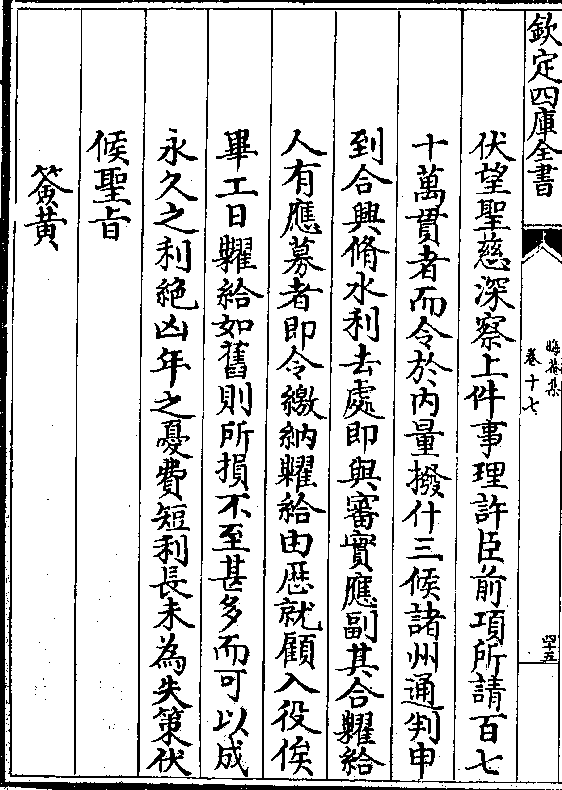 欽定四庫全書
晦菴集
卷十七
四十五
伏望聖慈深察上件事理許臣前項所請百七
十萬貫者而令於內量撥什三候諸州通判申
到合興脩水利去處即與審實應副其合糶給
人有應募者即令繳納糶給由歷就顧入役俟
畢工日糶給如舊則所損不至甚多而可以成
永久之利絶凶年之憂費短利長未為失策伏
候聖旨
簽黄